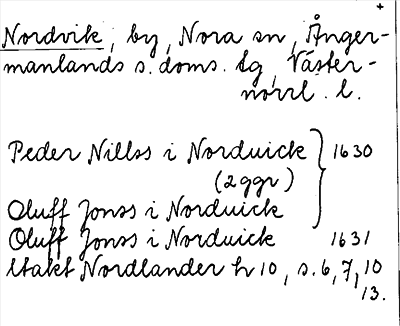 +
Nordvik, by, Nora sn, Ånger-
manlands s. doms. tg, Väster-
norrl. l.
Peder Nillss i Norduick } 1630
(2 ggr)
Oluff Jonss i Norduick
Oluff Jonss i Norduick 1631
Utakt Nordlander h 10, s. 6, 7, 10
, 13.